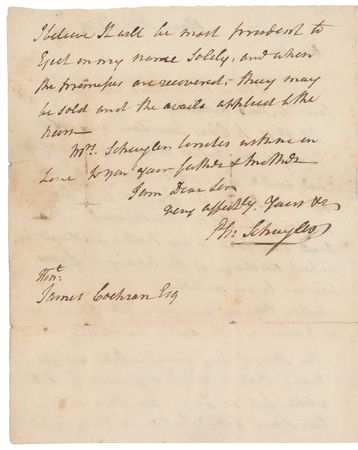 I believe It will be most prudent to
Eject in my name Solely, and when
the premises are recovered, they may
be sold and the avails applied to the
heirs
Mrs. Schuyler Unites with me in
Love to you your father & mother
I am Dear Sir
very affectly. Yours &c
Ph: Schuyler
Honl.
James Cochran Esq